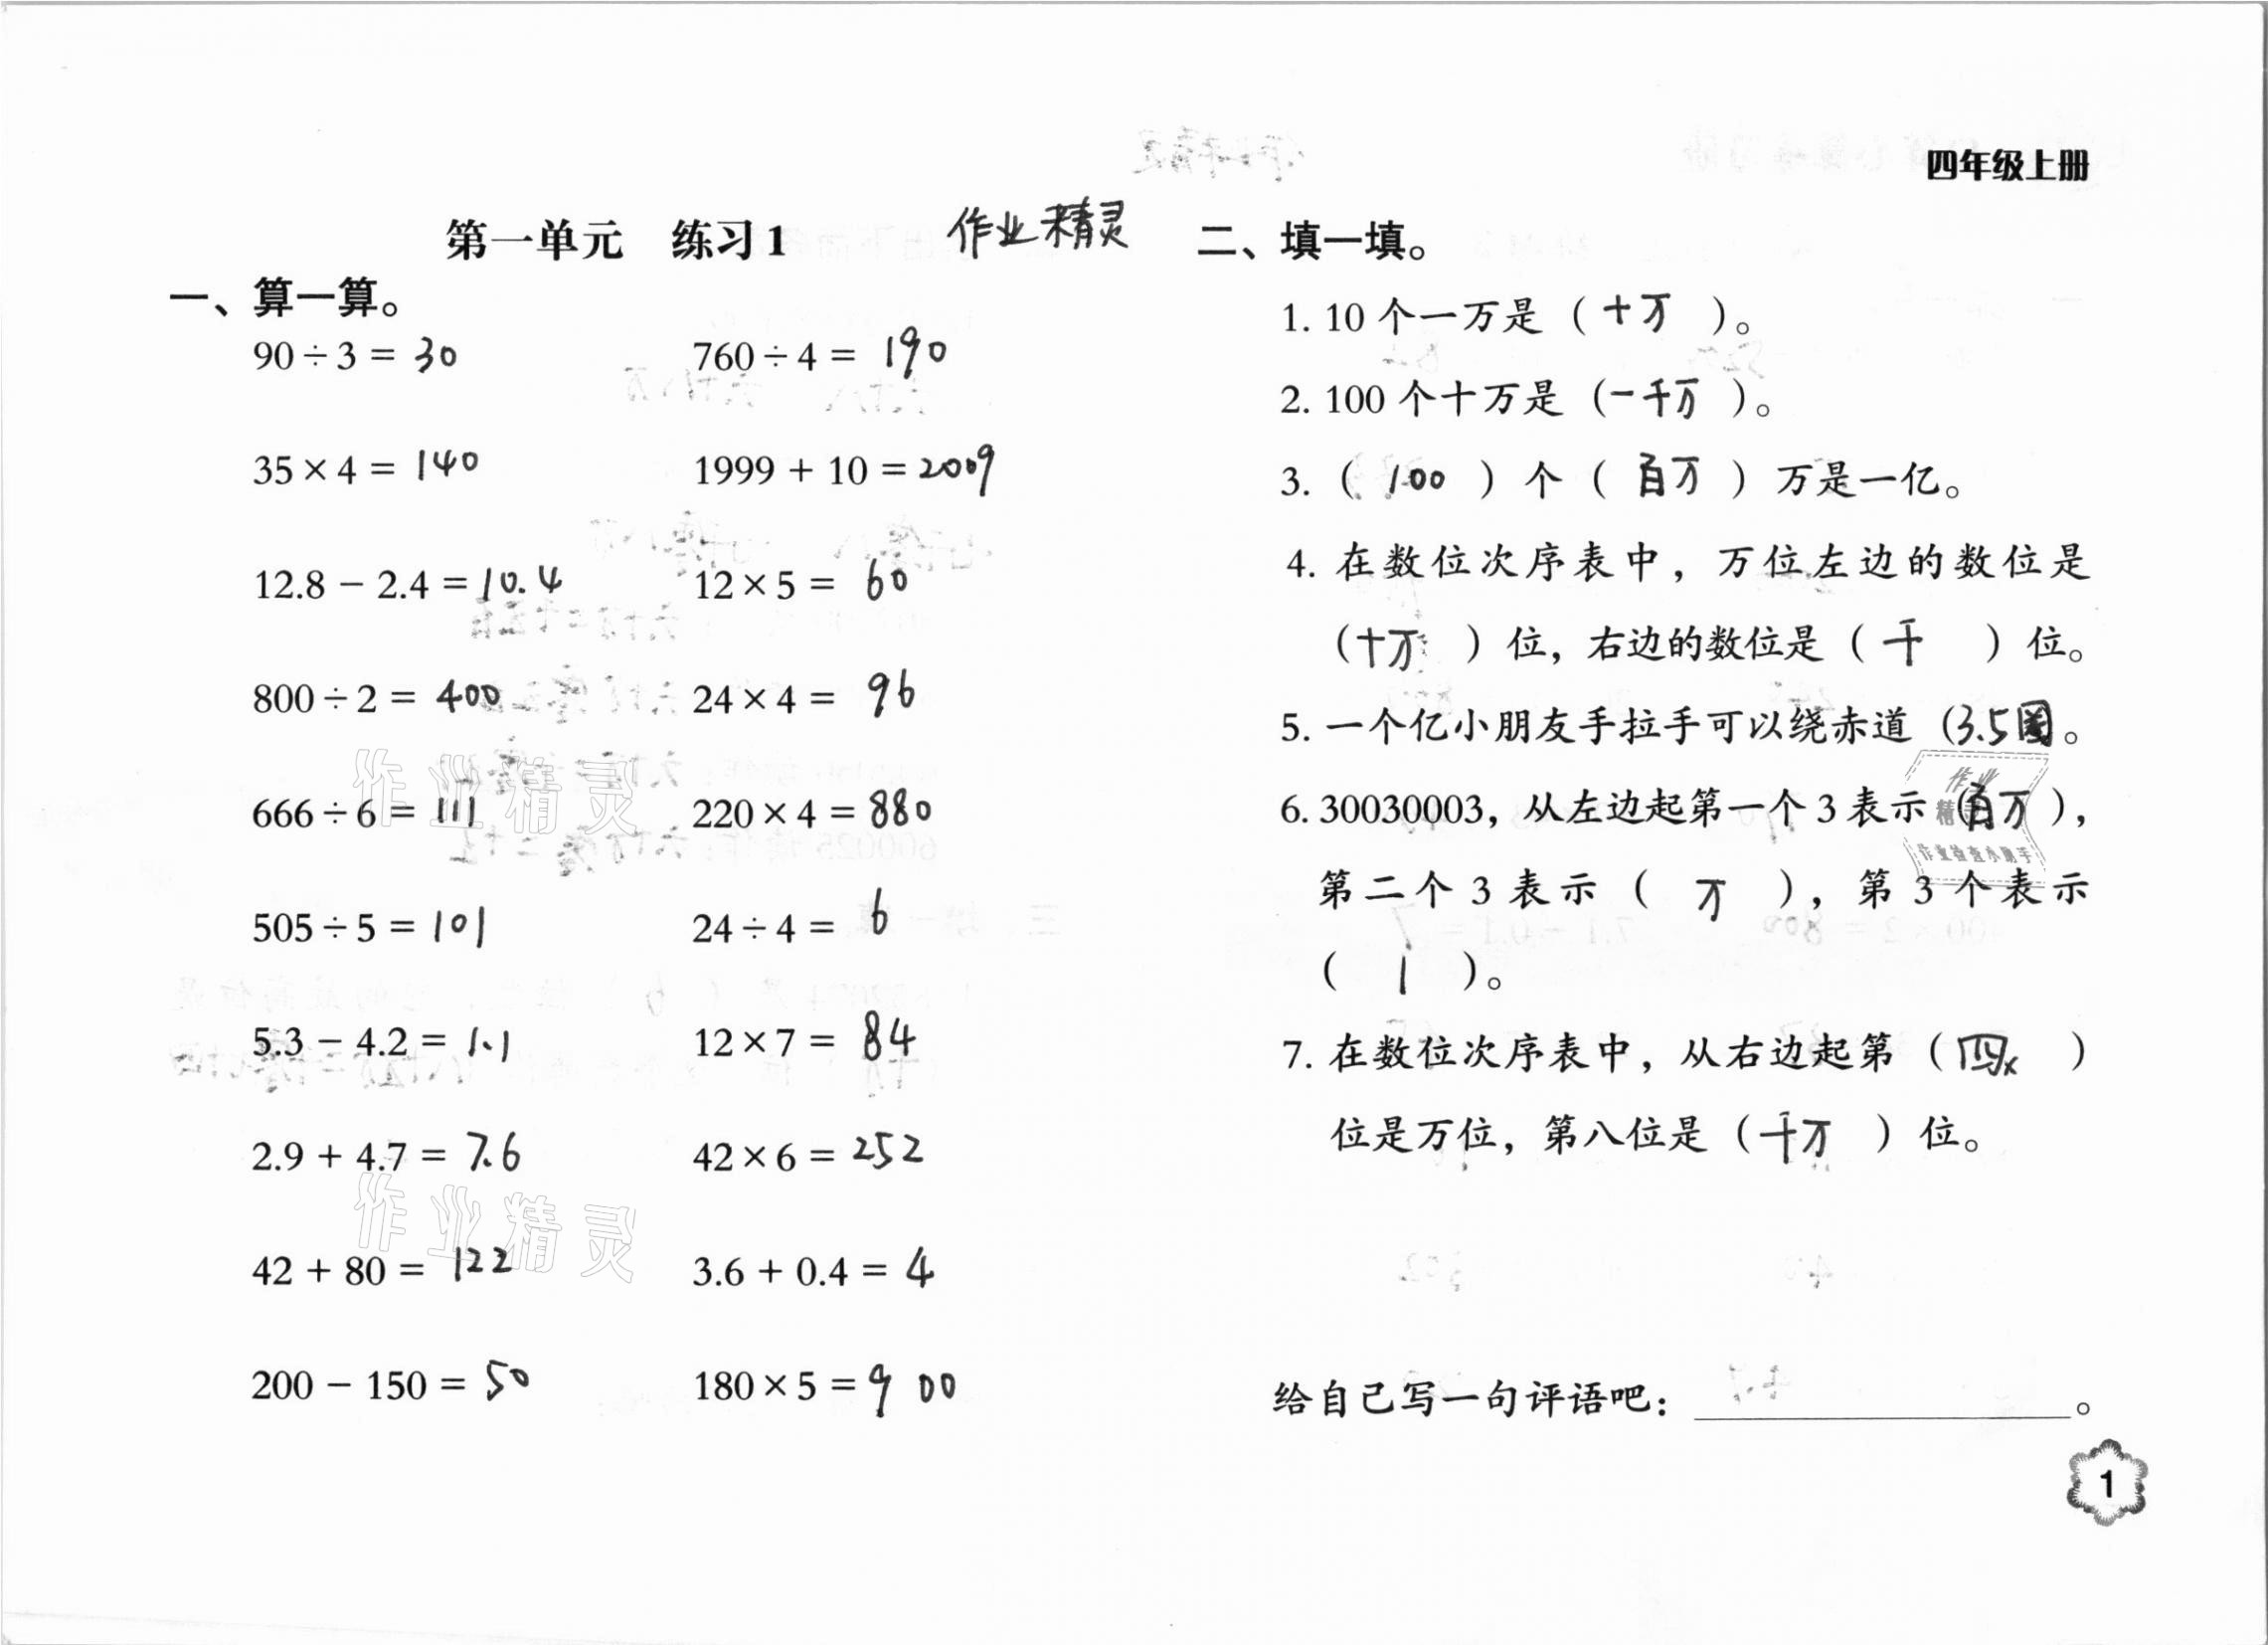 四年级上册
第一单元 练习1 作业精灵
一、算一算。
90÷3= 30 760÷4= 190
35×4= 140 1999+10=2009
12.8-2.4=10.4 12×5= 60
800÷2= 400 24×4= 96
666÷6= 111 220×4=880
505÷5= 101 24÷4= 6
5.3-4.2= 1.1 12×7= 84
2.9+4.7= 7.6 42×6= 252
42+80= 122 3.6+0.4= 4
200-150= 50 180×5=900
作业精灵
作业精灵
二、填一填。
1. 10个一万是（十万）。
2. 100个十万是（一千万）。
3.（100）个（百万）万是一亿。
4. 在数位次序表中，万位左边的数位是
（十万）位，右边的数位是（千）位。
5. 一个亿小朋友手拉手可以绕赤道（3.5圈。
6. 30030003，从左边起第一个3表示（百万），
第二个3表示（万），第3个表示
（1）。
7. 在数位次序表中，从右边起第（四）
位是万位，第八位是（千万）位。
作业
精灵
作业检查小助手
给自己写一句评语吧：。
1